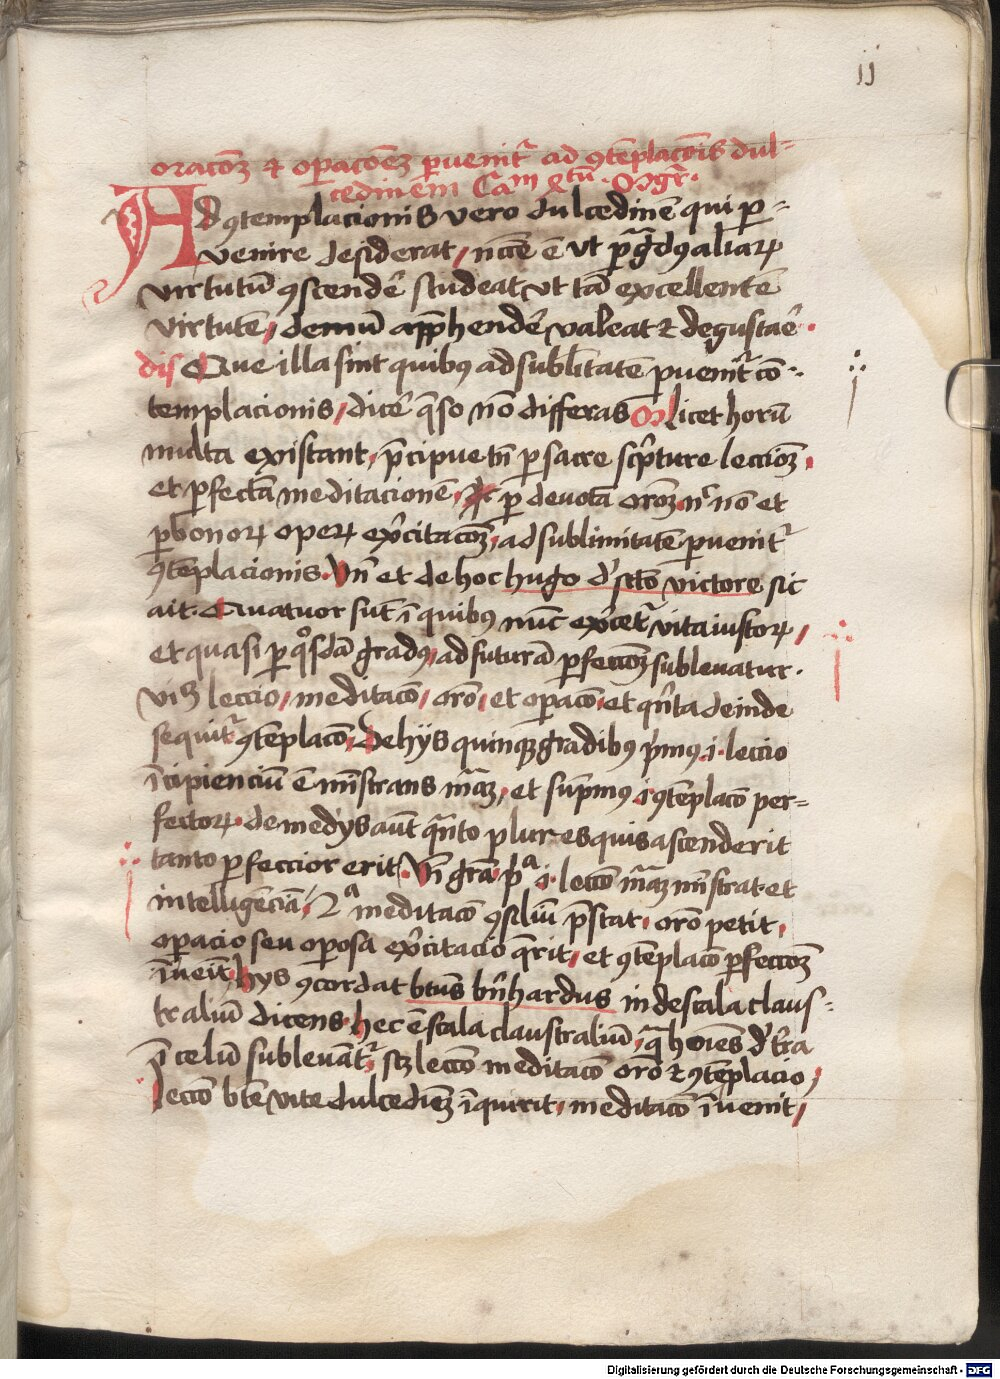 ij
oracōꝫ ⁊ opacōeꝫ ꝑuenitʳ ad ꝯtēplacōis dul-
cedinem Cam Mgʳ.
Ad ꝯtemplacionis vero dulcedinē qui ꝑ-
venire desiderat, ncce ē vt gͣdꝯ aliaꝝ
virtutū ꝯscendē studeat vt tā excellentē
virtutē, demū apꝑhendē valeat ⁊ degustaē.
dis Que illa sint quibꝯ ad sublītatē ꝑuenitʳ cō-
templacionis, dicē qͣso nō differas M licet horū
multa existant, pͥcipue tn̄ ꝑ sacre scpͥture lecciōꝫ.
et ꝑfectā meditacionē, ꝑ deuotā orōꝫ nʳ nō et
ꝑ bonoꝝ opeꝝ exꝰcitacōꝫ, ad sublimitatē ꝑuenitʳ
ꝯtēplacionis. Vn̄ et de hoc hugo dʼ scto victore sic
ait. Quatuor sūt ī quibꝯ nūc excetʳ vita iustoꝝ,
et quasi ꝑ qͦsdā gradꝯ, ad futurā ꝑfeccōꝫ subleuatur.
viꝫ leccio, meditacō, orō, et opacō, et qͥnta deinde
sequitʳ ꝯtēplacō, De hijs quinqꝫ gradibꝯ pͥmꝯ .i. leccio
īcipienciū ē mīstrans mͣaꝫ, et supͥmꝯ .i. ꝯtēplacō per-
fectoꝝ. de medijs aūt qͣnto plures quis ascenderit
tanto ꝑfeccior erit. Vn̄ grā pͣ .i. leccō mͣaꝫ mīstrat et
intelligēciā, 2ª meditacō ꝯsiliū pͤstat, orō petit,
opacio seu oposa excitacio qͤrit, et ꝯtēplacō ꝑfeccōꝫ
īueīt, hijs ꝯcordat btūs bn̄hardus in de scala claus-
traliū dicens, hec ē scala claustraliū, qͣ hoīes dʼ tͤra
ī celū subleuātʳ, scꝫ leccō meditacō orō ⁊ ꝯtēplacio,
leccō btē vite dulcediēꝫ īquirit, meditacō īuenit,
Digitalisierung gefördert durch die Deutsche Forschungsgemeinschaft - DFG